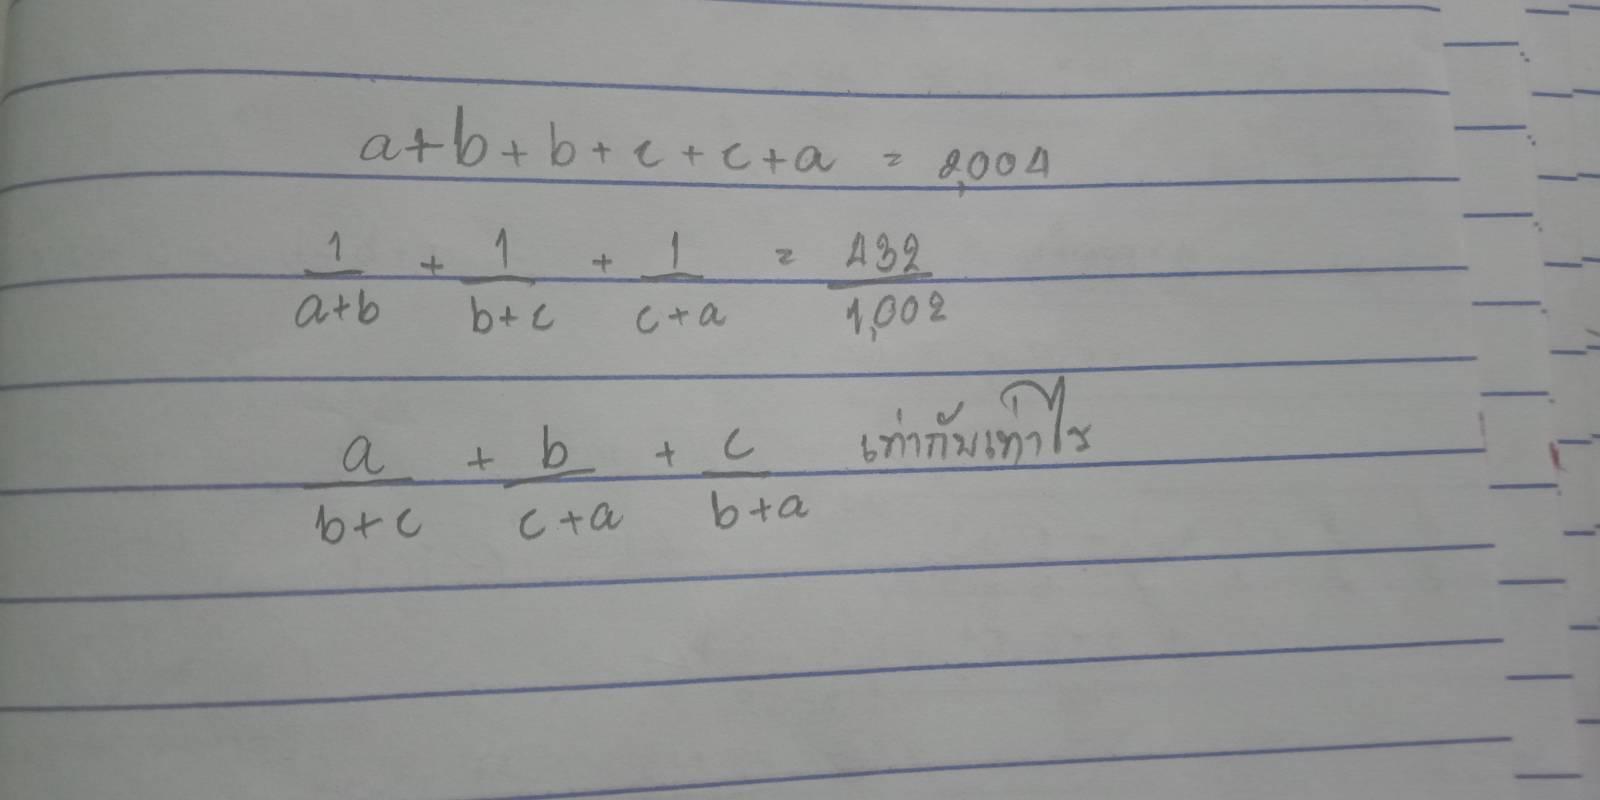 a+b+b+c+c+a = 2,004
1/(a+b) + 1/(b+c) + 1/(c+a) = 432/1,002
a/(b+c) + b/(c+a) + c/(b+a) เท่ากับเท่าไร